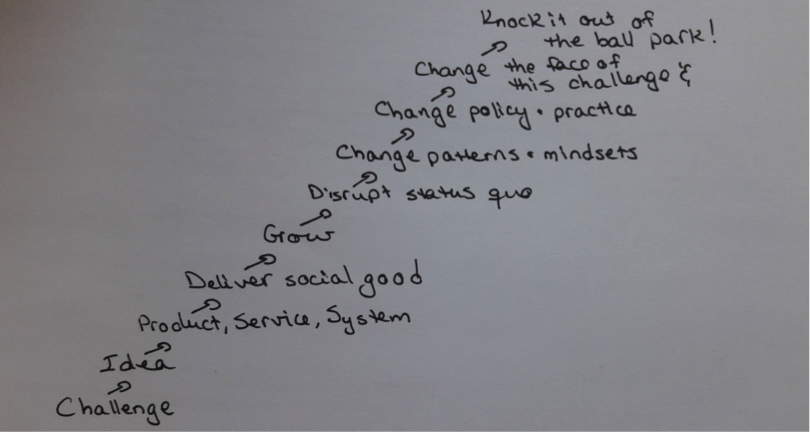 Knock it out of
the ball park!
Change the face of
this challenge &
Change policy • practice
Change patterns • mindsets
Disrupt status quo
Grow
Deliver social good
Product, Service, System
Idea
Challenge